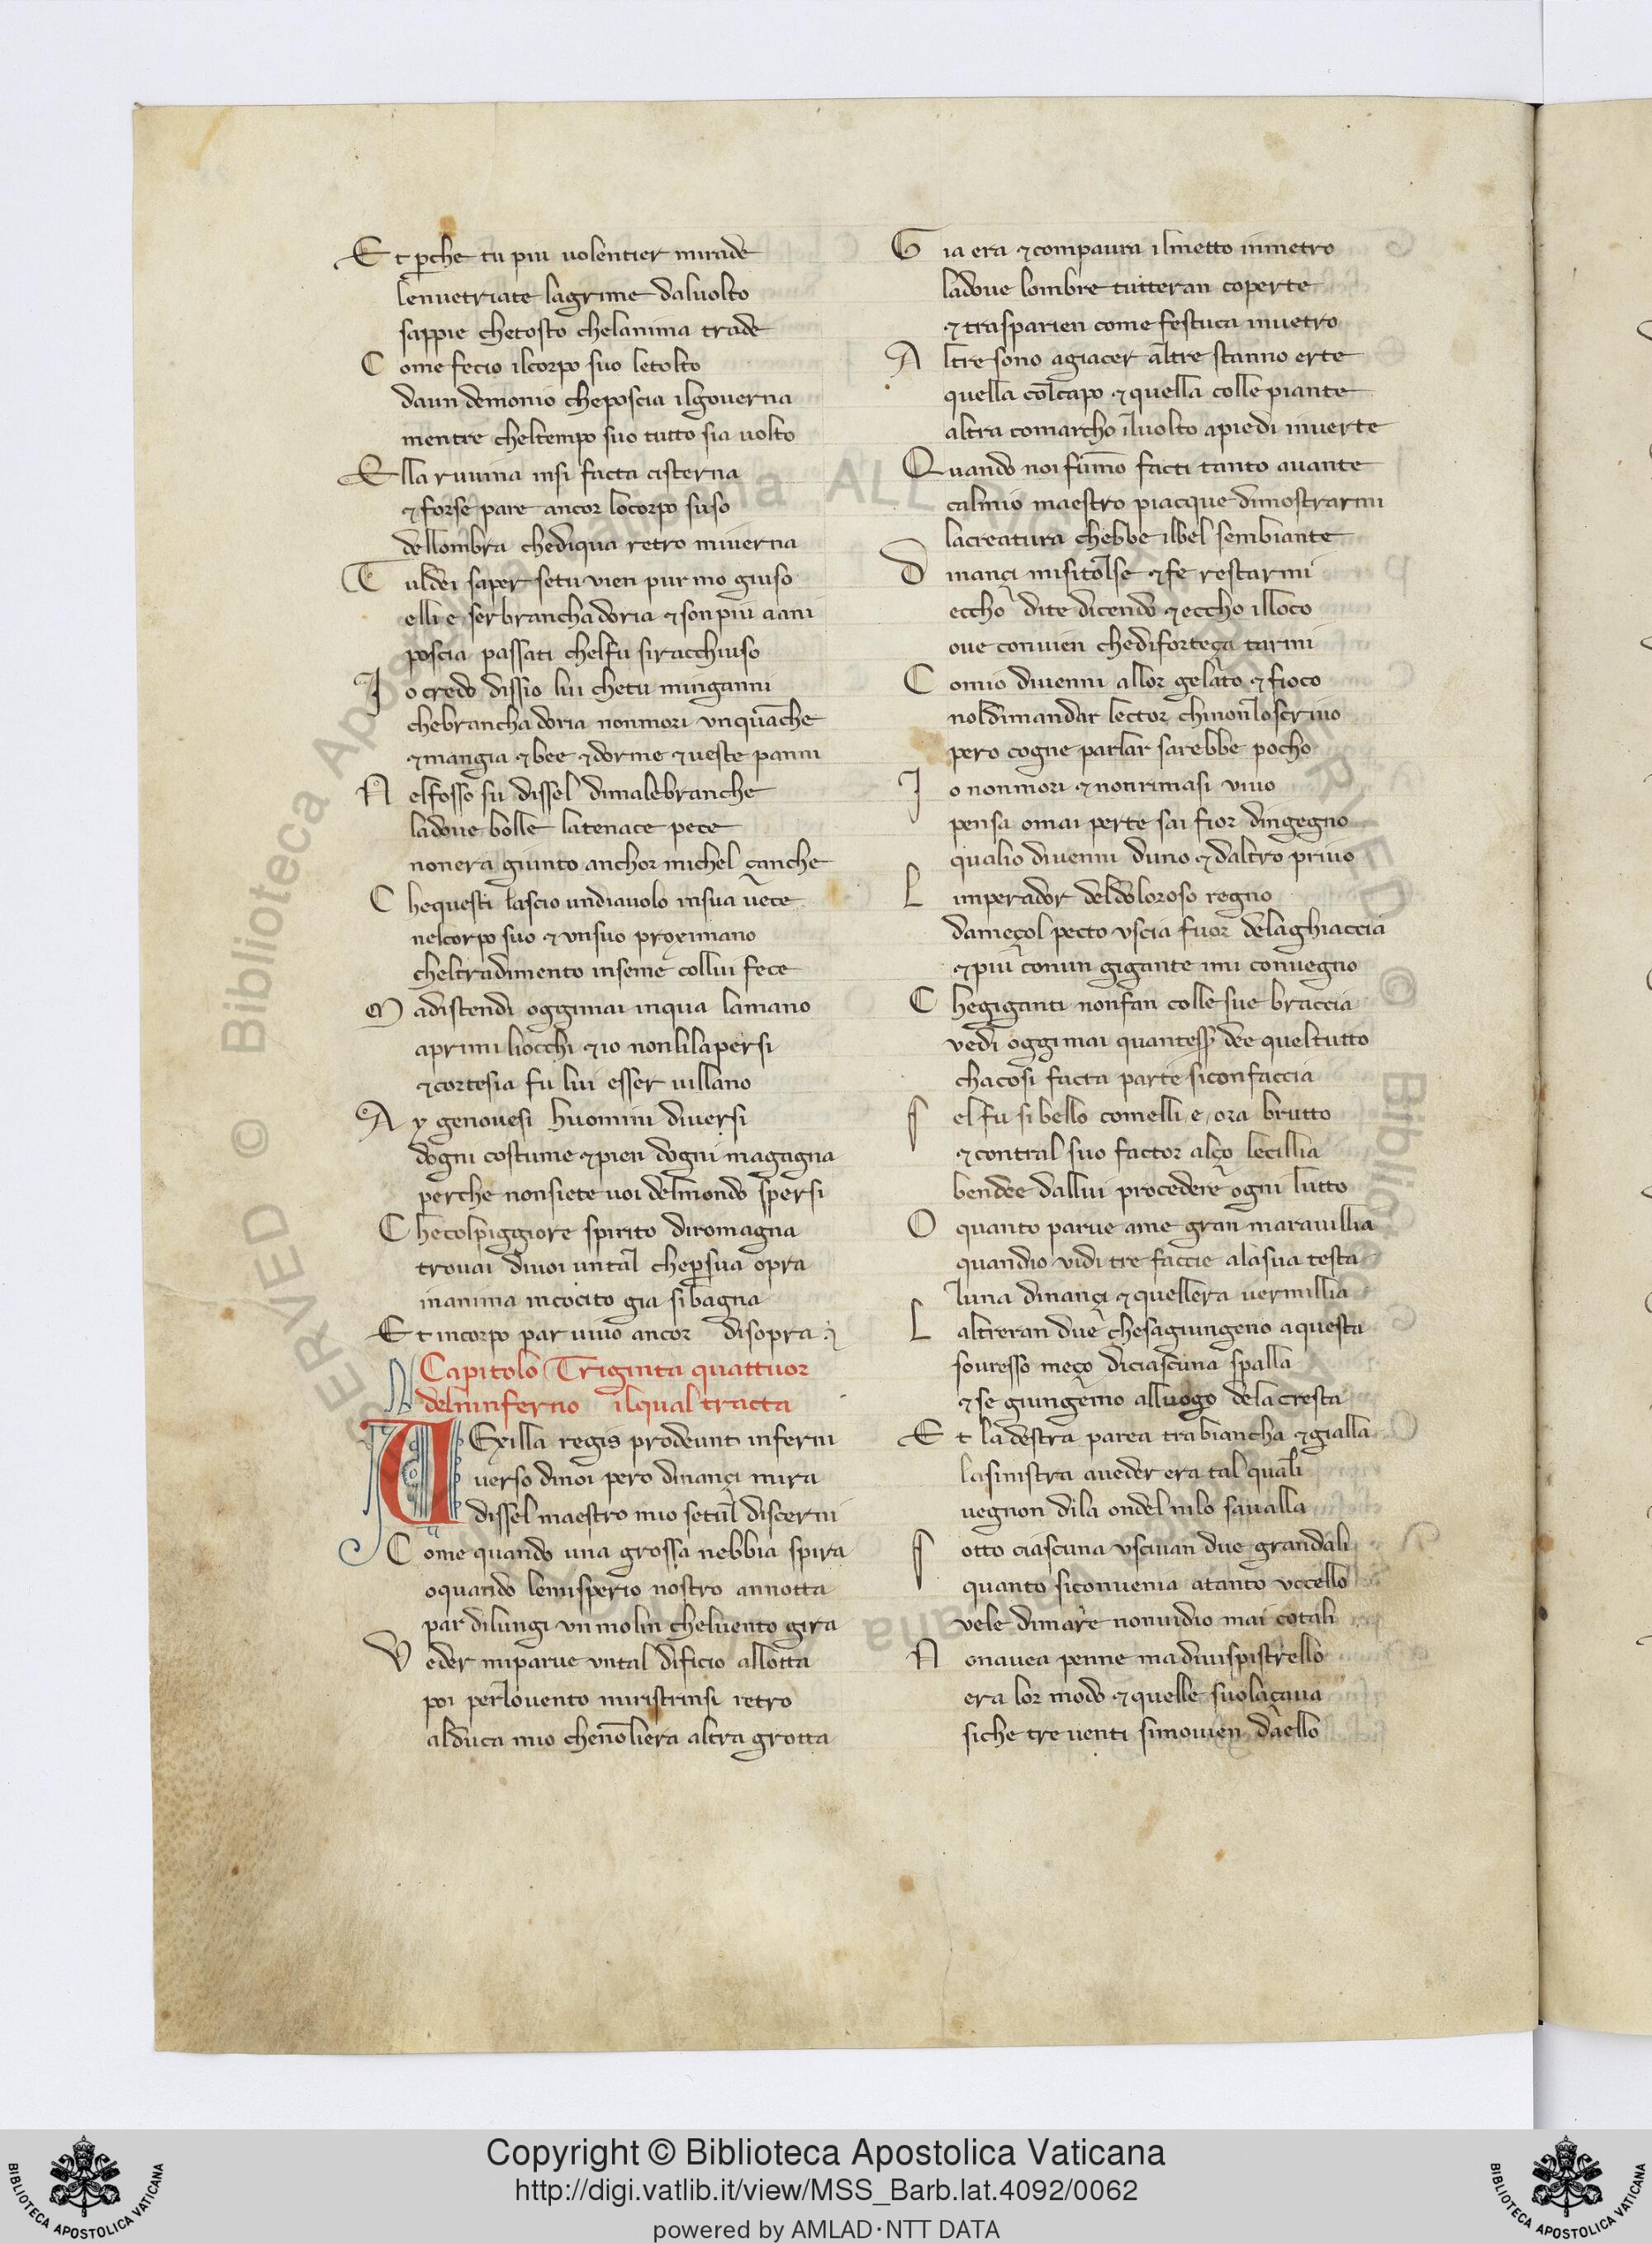 Et perche tu piu volentier mirade
lenuetriate lagrime daluolto
sappie chetosto chelanima trade
Come fecio ilcorpo suo letolto
daun demonio cheposcia ilgouerna
mentre cheltempo suo tutto sia uolto
Ella ruuina insi facta cisterna
& forse pare ancor locorpo suso
dellombra chediqua retro miuerna
Tuldei saper setu vien pur mo giuso
elli e ser brancha doria & son piu anni
poscia passati chelfu siracchiuso
Io credo dissio lui chetu minganni
chebrancha doria nonmori vnquanche
& mangia & bee & dorme & ueste panni
Nelfosso su dissel dimalebranche
ladoue bolle latenace pece
nonera giunto anchor michel çanche
Chequesti lascio undiauolo insua uece
nelcorpo suo & vnsuo proximano
cheltradimento inseme collui fece
Madistendi oggimai inqua lamano
aprimi liocchi & io nonlilapersi
& cortesia fu lui esser uillano
Ay genouesi huomini diuersi
dogni costume & pien dogni magagna
perche nonsiete uoi delmondo spersi
Checolpiggiore spirito diromagna
trouai diuoi untal chepersua opra
inanima incocito gia sibagna
Et incorpo par uiuo ancor disopra
Capitolo Triginta quattuor
delninferno ilqual tracta
Uexilla regis prodeunt inferni
uerso dinoi pero dinançi mira
dissel maestro mio setul discerni
Come quando una grossa nebbia spira
oquando lemisperio nostro annotta
par dilungi vn molin cheluento gira
Veder miparue vntal dificio allotta
poi perlouento miristrinsi retro
alduca mio chenoliera altra grotta
Gia era & compaura ilmetto inmetro
ladoue lombre tutteran coperte
& trasparien come festuca inuetro
Altre sono agiacer altre stanno erte
quella colcapo & quella colle piante
altra comarcho iluolto apiedi inuerte
Quando noi fumo facti tanto auante
calmio maestro piacque dimostrarmi
lacreatura chebbe ilbel sembiante
Dinançi misitolse & fe restarmi
eccho dite dicendo & eccho illoco
oue conuien chediforteça tarmi
Comio diuenni allor gelato & fioco
noldimandar lector chinonloscriuo
pero cogne parlar sarebbe pocho
Io nonmori & nonrimasi viuo
pensa omai perte sai fior dingegno
qualio diuenni duno & daltro priuo
Limperador deldoloroso regno
dameçol pecto vscia fuor delaghiaccia
& piu conun gigante imi conuegno
Chegiganti nonfan colle sue braccia
vedi oggimai quantesser dee queltutto
chacosi facta parte siconfaccia
Sel fu si bello comelli e ora brutto
& contral suo factor alço lecillia
bendee dallui procedere ogni lutto
O quanto parue ame gran marauillia
quandio vidi tre faccie alasua testa
luna dinançi & quellera uermillia
Laltreran due chesagiungeno aquesta
souresso meço diciascuna spalla
& se giungeino alluogo dela cresta
Et la destra parea tra biancha & gialla
lasinistra aueder era tal quali
uegnon dila ondel nilo saualla
Sotto ciascuna vsciuan due grandali
quanto siconuenia atanto vccello
vele dimare nonuidio mai cotali
Nonauea penne ma diuispistrello
era lor modo & quelle suolaçaua
siche tre uenti simouien daello
Copyright © Biblioteca Apostolica Vaticana
http://digi.vatlib.it/view/MSS_Barb.lat.4092/0062
powered by AMLAD·NTT DATA
BIBLIOTECA APOSTOLICA VATICANA
BIBLIOTECA APOSTOLICA VATICANA